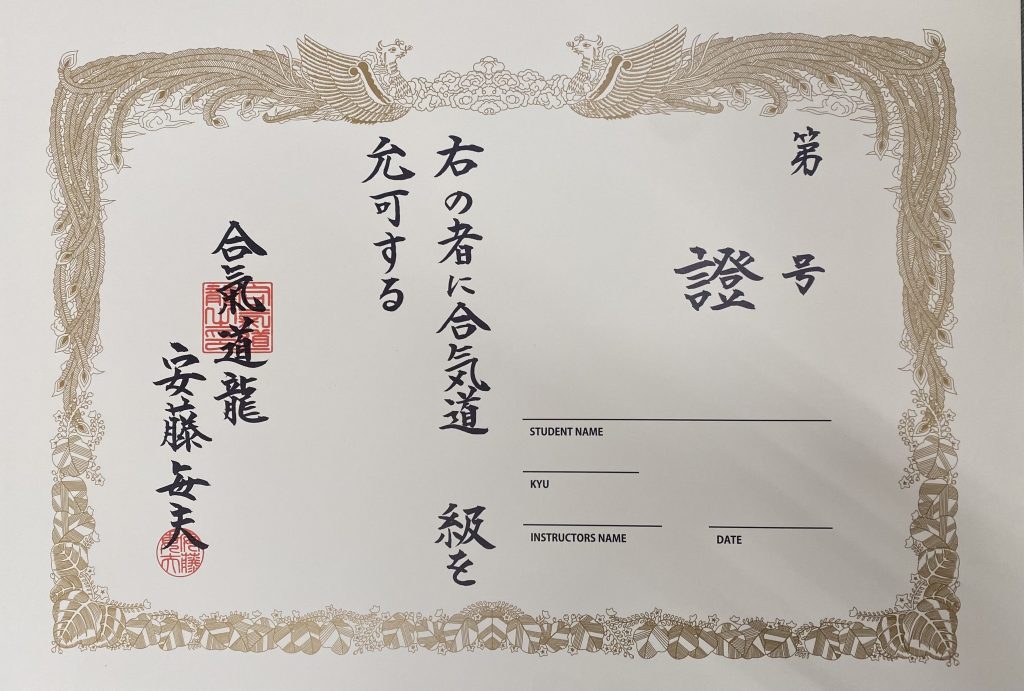 第 号
證
STUDENT NAME
KYU
INSTRUCTORS NAME
DATE
右の者に合気道 級を
允可する
合氣道龍
安藤毎夫